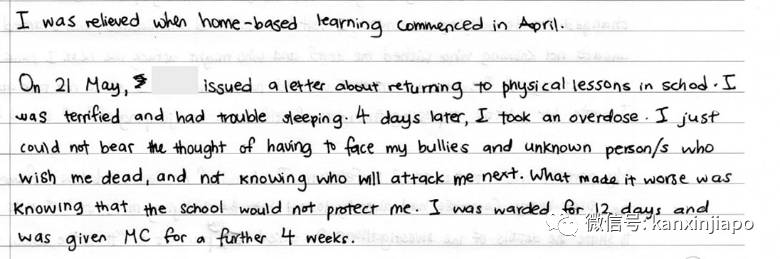 I was relieved when home-based learning commenced in April.
On 21 May, issued a letter about returning to physical lessons in school. I
was terrified and had trouble sleeping. 4 days later, I took an overdose. I just
could not bear the thought of having to face my bullies and unknown person/s who
wish me dead, and not knowing who will attack me next. What made it worse was
knowing that the school would not protect me. I was warded for 12 days and
was given MC for a further 4 weeks.
微信号: kanxinjiapo